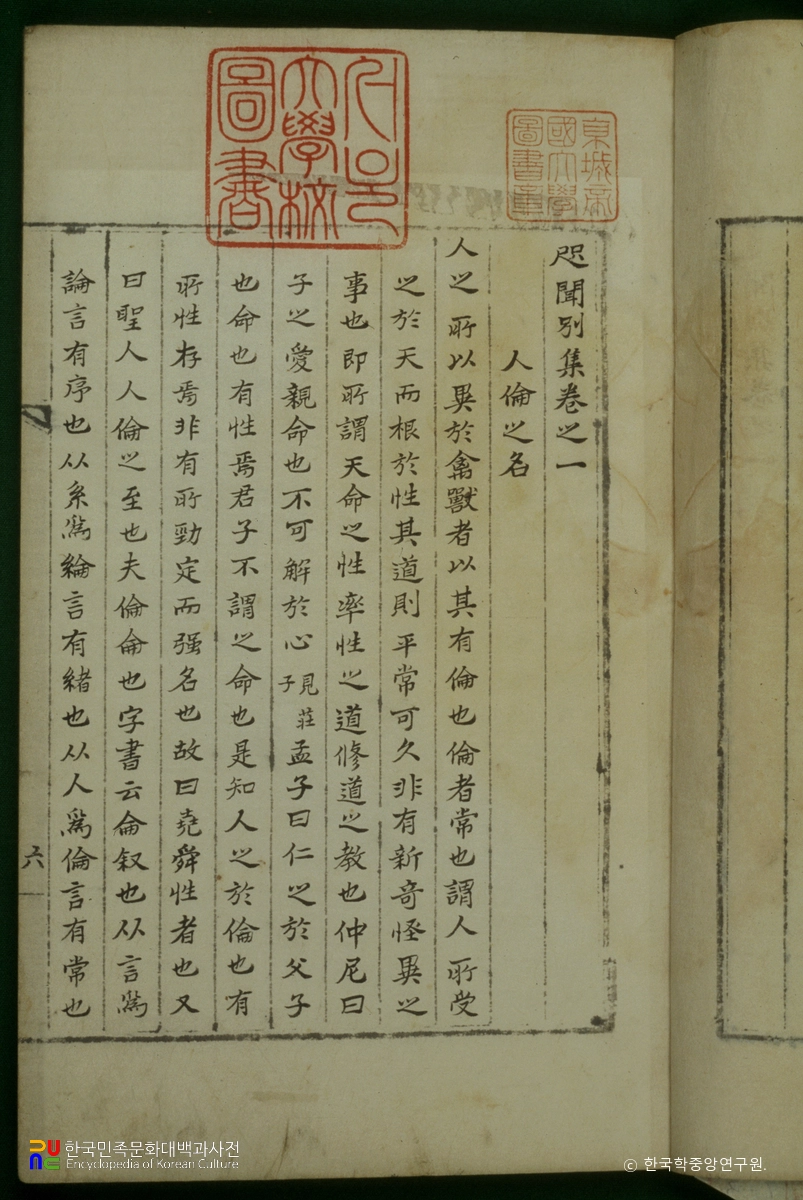 서울大學校圖書
京城帝國大學圖書章
咫聞別集卷之一
人倫之名
人之所以異於禽獸者以其有倫也倫者常也謂人所受
之於天而根於性其道則平常可久非有新奇怪異之
事也即所謂天命之性率性之道修道之教也仲尼曰
子之愛親命也不可解於心見莊子孟子曰仁之於父子
也命也有性焉君子不謂之命也是知人之於倫也有
所性存焉非有所勁定而强名也故曰堯舜性者也又
曰聖人人倫之至也夫倫侖也字書云侖叙也从言爲
論言有序也从糸爲綸言有緒也从人爲倫言有常也
六
한국민족문화대백과사전
Encyclopedia of Korean Culture
ⓒ 한국학중앙연구원.